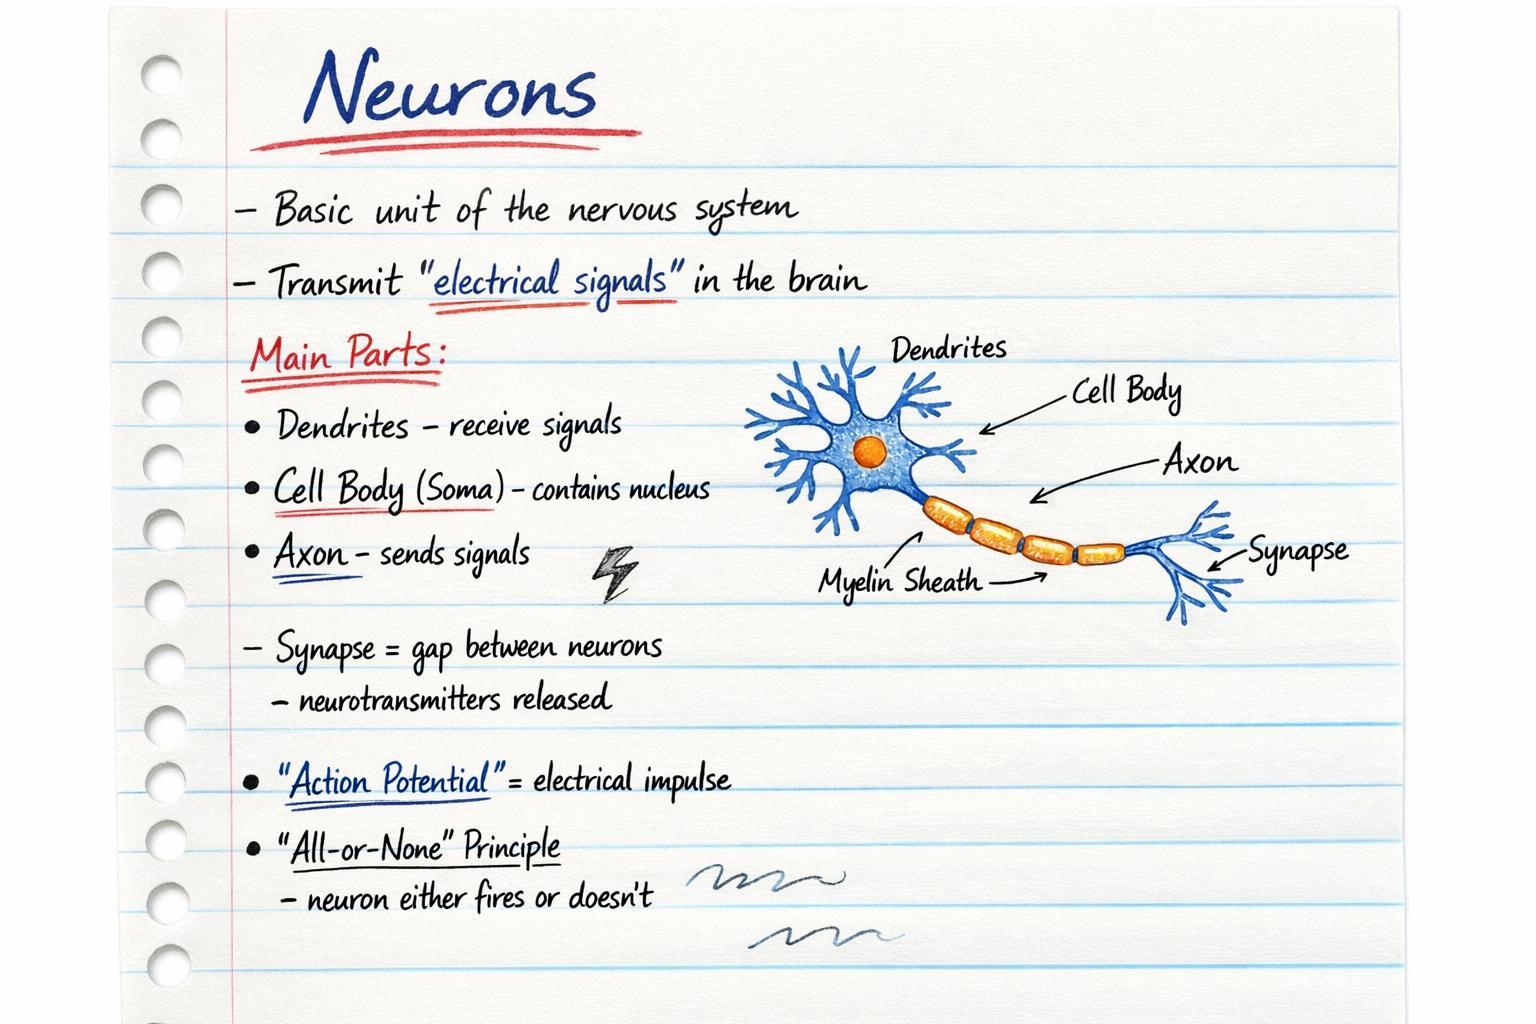 Neurons
– Basic unit of the nervous system
– Transmit "electrical signals" in the brain
Main Parts:
• Dendrites – receive signals
• Cell Body (Soma) – contains nucleus
• Axon – sends signals
Dendrites
Cell Body
Axon
Myelin Sheath
Synapse
– Synapse = gap between neurons
– neurotransmitters released
• "Action Potential" = electrical impulse
• "All-or-None" Principle
– neuron either fires or doesn't